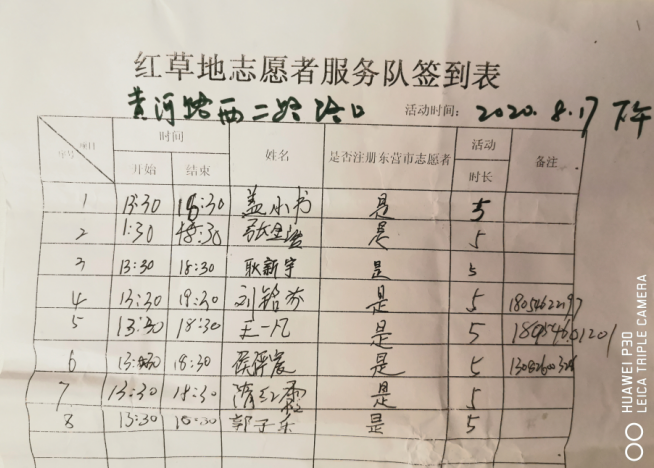 红草地志愿者服务队签到表
黄河路西二路路口 活动时间: 2020.8.17 下午
序号 项目 时间 姓名 是否注册东营市志愿者 活动 备注
开始 结束 时长
1 13:30 18:30 盖小书 是 5
2 1:30 18:30 是 5
3 13:30 18:30 耿新宇 是 5
4 13:30 19:30 刘 是 5
5 13:30 18:30 王一凡 是 5
6 13:30 18:30 是 5
7 13:30 18:30 隋红霞 是 5
8 13:30 18:30 郭子 是 5
HUAWEI P30
LEICA TRIPLE CAMERA